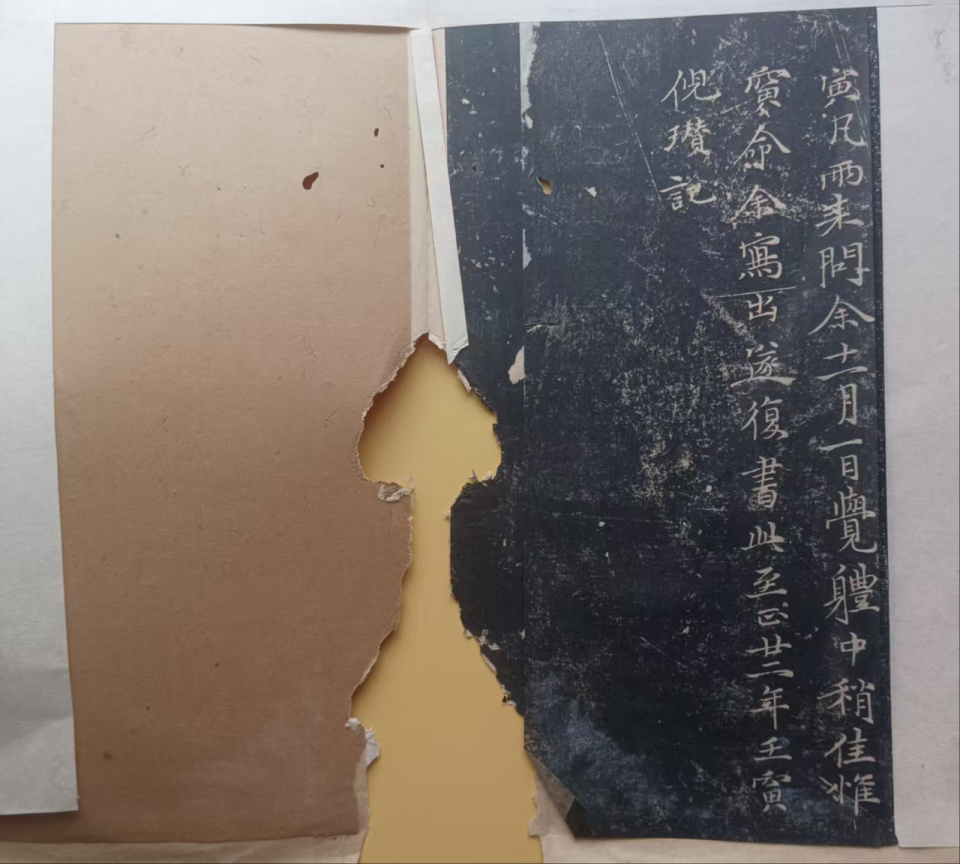 寅凡两来問余十二月一日覺軆中稍佳惟
寅命余寫出遂復書此至正廿二年壬寅
倪瓚記